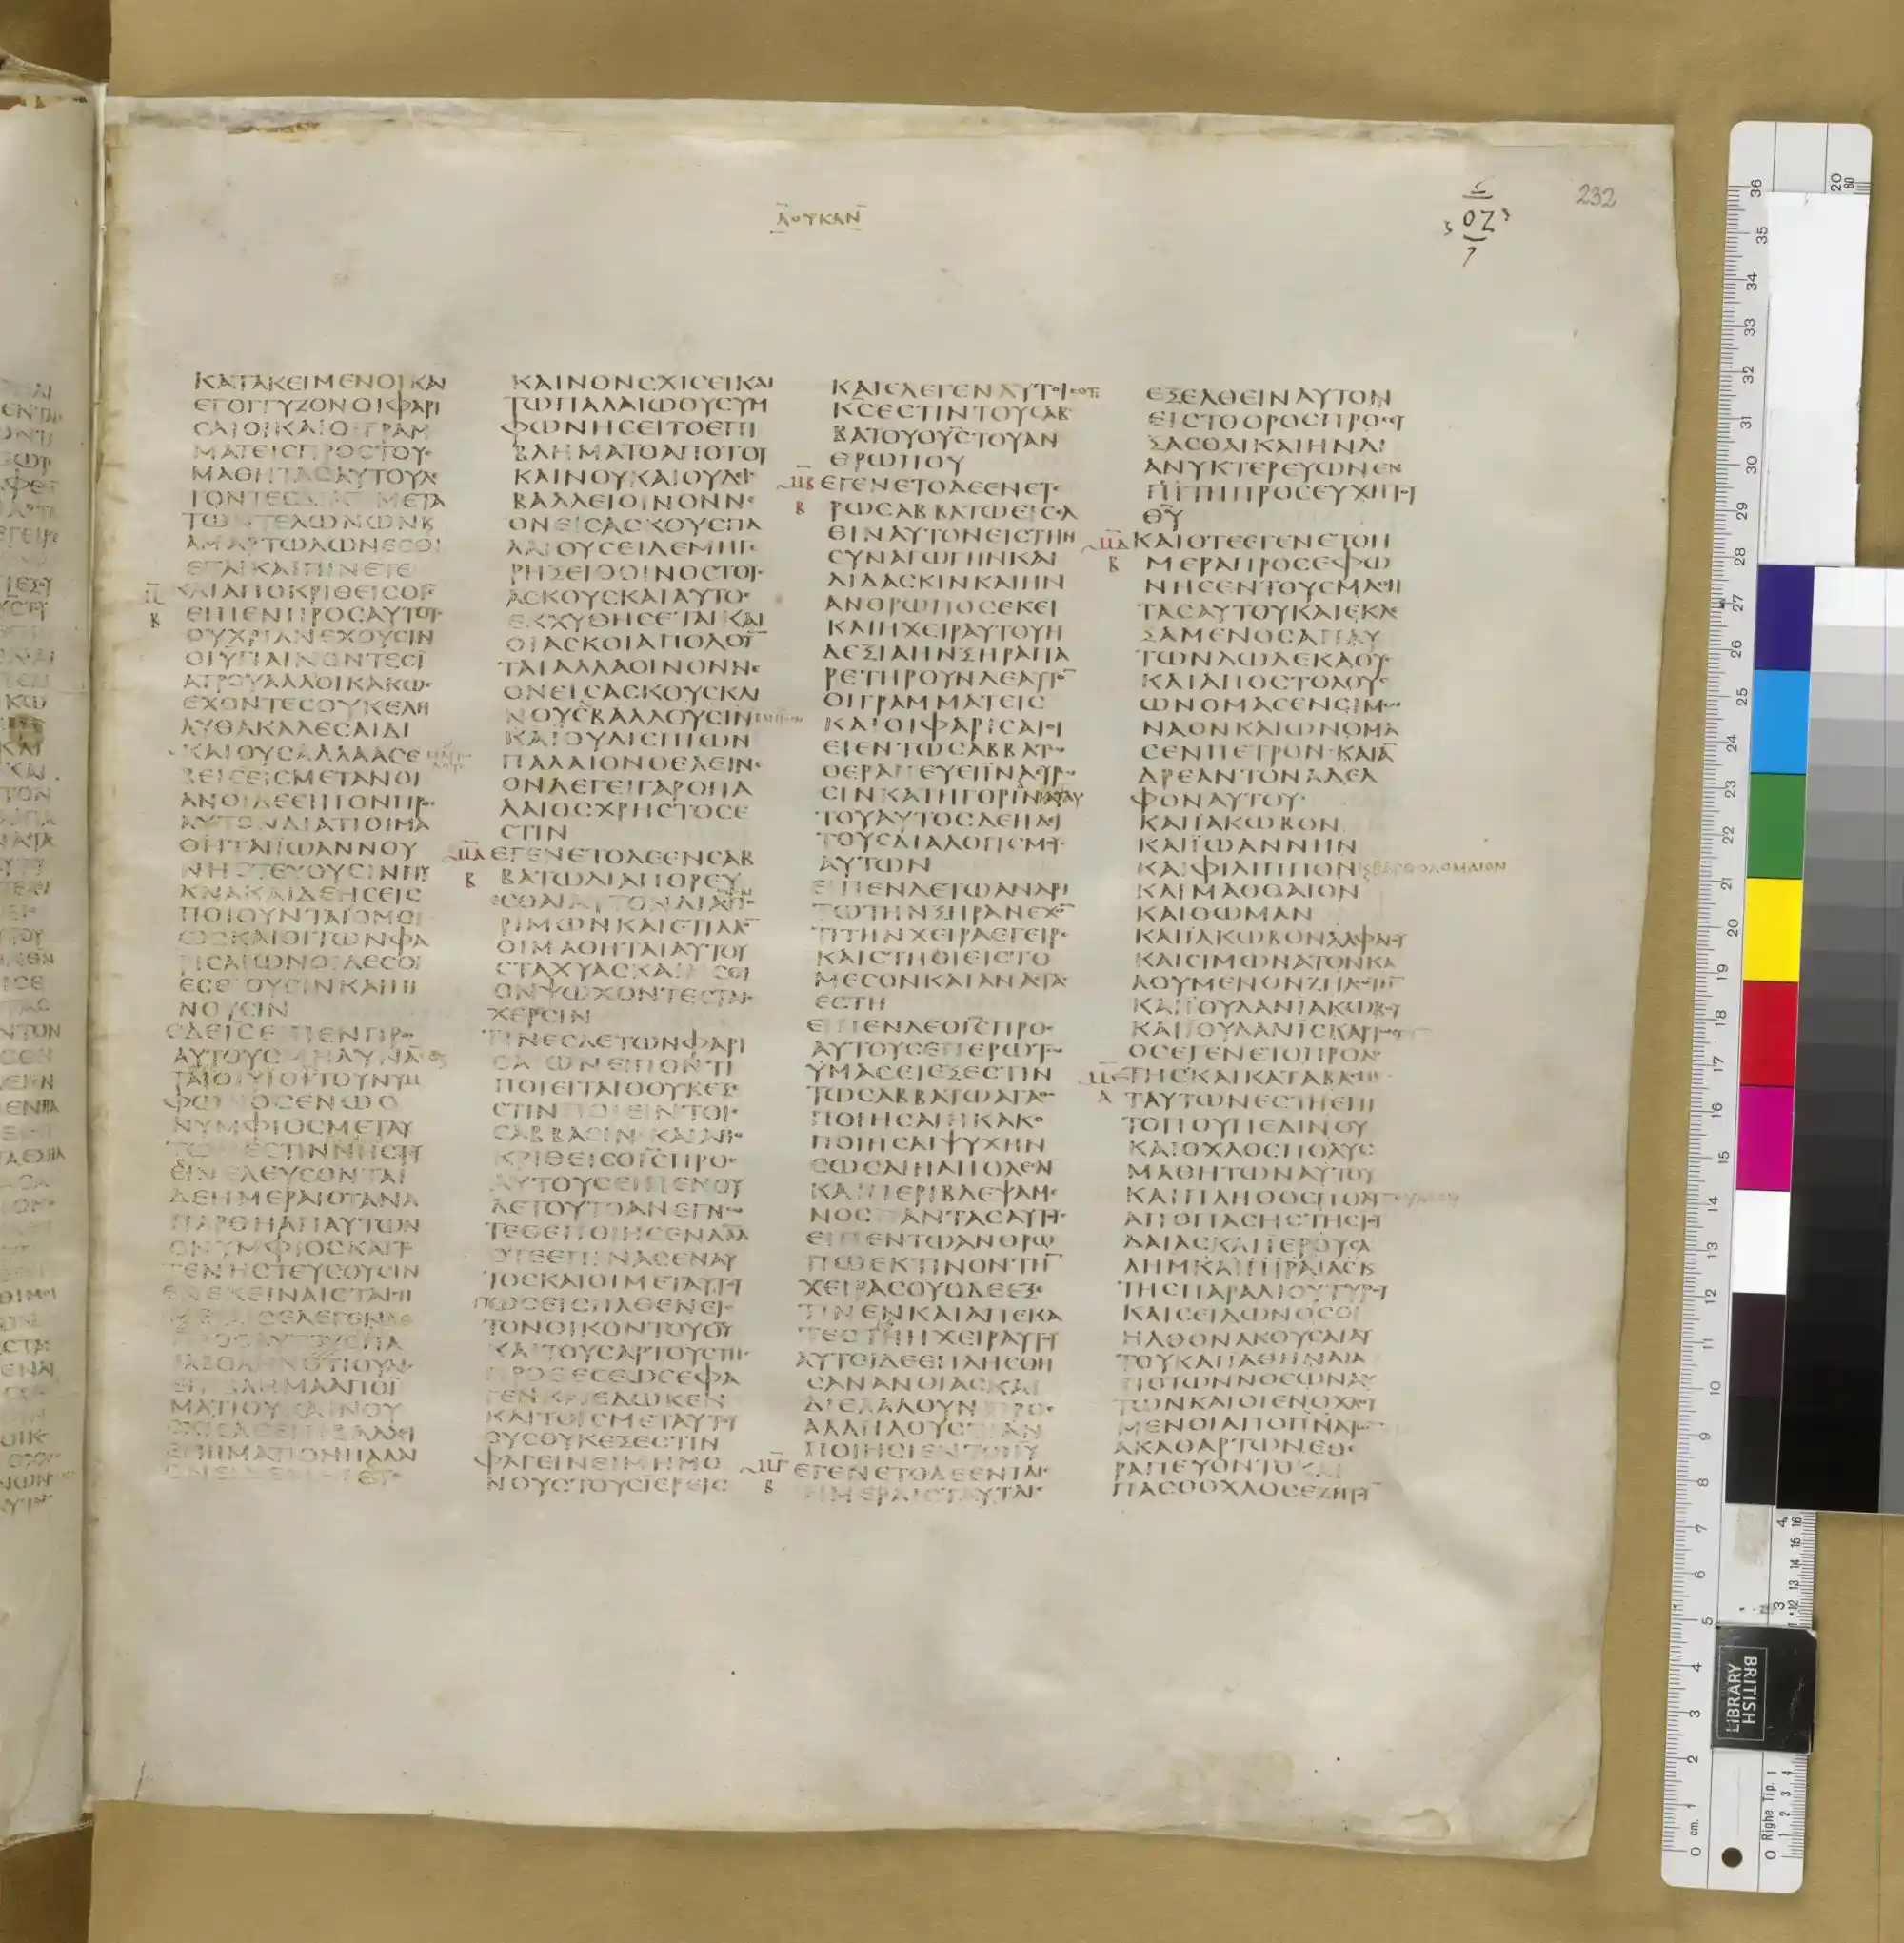 ΛΟΥΚΑΝ
232
ΟΖ
ΚΑΤΑΚΕΙΜΕΝΟΙ ΚΑΙ
ΕΓΟΓΓΥΖΟΝ ΟΙ ΦΑΡΙ
ϹΑΙΟΙ ΚΑΙ ΟΙ ΓΡΑΜ
ΜΑΤΕΙϹ ΠΡΟϹ ΤΟΥϹ
ΜΑΘΗΤΑϹ ΑΥΤΟΥ ΛΕ
ΓΟΝΤΕϹ ΔΙΑΤΙ ΜΕΤΑ
ΤΩΝ ΤΕΛΩΝΩΝ Κ
ΑΜΑΡΤΩΛΩΝ ΕϹΘΙ
ΕΤΑΙ ΚΑΙ ΠΙΝΕΤΕ
ΚΑΙ ΑΠΟΚΡΙΘΕΙϹ Ο ΙϹ
ΕΙΠΕΝ ΠΡΟϹ ΑΥΤΟΥϹ
ΟΥ ΧΡΙΑΝ ΕΧΟΥϹΙΝ
ΟΙ ΥΓΙΑΙΝΟΝΤΕϹ Ϊ
ΑΤΡΟΥ ΑΛΛ ΟΙ ΚΑΚΩϹ
ΕΧΟΝΤΕϹ ΟΥΚ ΕΛΗ
ΛΥΘΑ ΚΑΛΕϹΑΙ ΔΙ
ΚΑΙΟΥϹ ΑΛΛΑ ΑϹΕ
ΒΕΙϹ ΕΙϹ ΜΕΤΑΝΟΙ
ΑΝ ΟΙ ΔΕ ΕΙΠΟΝ ΠΡΟϹ
ΑΥΤΟΝ ΔΙΑΤΙ ΟΙ ΜΑ
ΘΗΤΑΙ ΪΩΑΝΝΟΥ
ΝΗϹΤΕΥΟΥϹΙΝ ΠΥ
ΚΝΑ ΚΑΙ ΔΕΗϹΕΙϹ
ΠΟΙΟΥΝΤΑΙ ΟΜΟΙ
ΩϹ ΚΑΙ ΟΙ ΤΩΝ ΦΑ
ΡΙϹΑΙΩΝ ΟΙ ΔΕ ϹΟΙ
ΕϹΘΙΟΥϹΙΝ ΚΑΙ ΠΙ
ΝΟΥϹΙΝ
Ο ΔΕ ΙϹ ΕΙΠΕΝ ΠΡΟϹ
ΑΥΤΟΥϹ ΜΗ ΔΥΝΑΝ
ΤΑΙ ΟΙ ΥΙΟΙ ΤΟΥ ΝΥΜ
ΦΩΝΟϹ ΕΝ Ω Ο
ΝΥΜΦΙΟϹ ΜΕΤ ΑΥ
ΤΩΝ ΕϹΤΙΝ ΝΗϹΤΕΥ
ΕΙΝ ΕΛΕΥϹΟΝΤΑΙ
ΔΕ ΗΜΕΡΑΙ ΟΤΑΝ Α
ΠΑΡΘΗ ΑΠ ΑΥΤΩΝ
Ο ΝΥΜΦΙΟϹ ΚΑΙ Τ
ΤΕ ΝΗϹΤΕΥϹΟΥϹΙΝ
ΕΝ ΕΚΕΙΝΑΙϹ ΤΑΙϹ Η
ΕΛΕΓΕΝ ΔΕ
ΕΠΙΒΛΗΜΑ ΑΠΟ Ϊ
ΜΑΤΙΟΥ ΚΑΙΝΟΥ
ΕΠΙ ΙΜΑΤΙΟΝ ΠΑΛΑΙ
ΚΑΙΝΟΝ ϹΧΙϹΕΙ ΚΑΙ
ΤΩ ΠΑΛΑΙΩ ΟΥ ϹΥΜ
ΦΩΝΗϹΕΙ ΤΟ ΕΠΙ
ΒΛΗΜΑ ΤΟ ΑΠΟ ΤΟΥ
ΚΑΙΝΟΥ ΚΑΙ ΟΥΔΙϹ
ΒΑΛΛΕΙ ΟΙΝΟΝ ΝΕ
ΟΝ ΕΙϹ ΑϹΚΟΥϹ ΠΑ
ΛΑΙΟΥϹ ΕΙ ΔΕ ΜΗ Γε
ΡΗΞΕΙ Ο ΟΙΝΟϹ ΤΟΥϹ
ΑϹΚΟΥϹ ΚΑΙ ΑΥΤΟϹ
ΕΚΧΥΘΗϹΕΤΑΙ ΚΑΙ
ΟΙ ΑϹΚΟΙ ΑΠΟΛΟΥΝ
ΤΑΙ ΑΛΛΑ ΟΙΝΟΝ ΝΕ
ΟΝ ΕΙϹ ΑϹΚΟΥϹ ΚΑΙ
ΝΟΥϹ ΒΑΛΛΟΥϹΙΝ
ΚΑΙ ΟΥΔΙϹ ΠΙΩΝ
ΠΑΛΑΙΟΝ ΘΕΛΕΙ ΝΕ
ΟΝ ΛΕΓΕΙ ΓΑΡ Ο ΠΑ
ΛΑΙΟϹ ΧΡΗϹΤΟϹ Ε
ϹΤΙΝ
ΕΓΕΝΕΤΟ ΔΕ ΕΝ ϹΑΒ
ΒΑΤΩ ΔΙΑΠΟΡΕΥ
ΕϹΘΑΙ ΑΥΤΟΝ ΔΙΑ ϹΠΟ
ΡΙΜΩΝ ΚΑΙ ΕΤΙΛΛΟΝ
ΟΙ ΜΑΘΗΤΑΙ ΑΥΤΟΥ
ϹΤΑΧΥΑϹ ΚΑΙ ΗϹΘΙ
ΟΝ ΨΩΧΟΝΤΕϹ ΤΑΙϹ
ΧΕΡϹΙΝ
ΤΙΝΕϹ ΔΕ ΤΩΝ ΦΑΡΙ
ϹΑΙΩΝ ΕΙΠΟΝ ΤΙ
ΠΟΙΕΙΤΑΙ Ο ΟΥΚ ΕΞΕ
ϹΤΙΝ ΠΟΙΕΙΝ ΤΟΙϹ
ϹΑΒΒΑϹΙΝ ΚΑΙ ΑΠΟ
ΚΡΙΘΕΙϹ Ο ΙϹ ΠΡΟϹ
ΑΥΤΟΥϹ ΕΙΠΕΝ ΟΥ
ΔΕ ΤΟΥΤΟ ΑΝΕΓΝΩ
ΤΕ Ο ΕΠΟΙΗϹΕΝ ΔΑΔ
ΟΤΕ ΕΠΙΝΑϹΕΝ ΑΥ
ΤΟϹ ΚΑΙ ΟΙ ΜΕΤ ΑΥΤΟΥ
ΠΩϹ ΕΙϹΗΛΘΕΝ ΕΙϹ
ΤΟΝ ΟΙΚΟΝ ΤΟΥ ΘΥ
ΚΑΙ ΤΟΥϹ ΑΡΤΟΥϹ ΤΗϹ
ΠΡΟΘΕϹΕΩϹ ΕΦΑ
ΓΕΝ ΚΑΙ ΕΔΩΚΕΝ
ΚΑΙ ΤΟΙϹ ΜΕΤ ΑΥΤΟΥ
ΟΥϹ ΟΥΚ ΕΞΕϹΤΙΝ
ΦΑΓΕΙΝ ΕΙ ΜΗ ΜΟ
ΝΟΥϹ ΤΟΥϹ ΙΕΡΕΙϹ
ΚΑΙ ΕΛΕΓΕΝ ΑΥΤΟΙϹ ΟΤΙ
ΚϹ ΕϹΤΙΝ ΤΟΥ ϹΑΒ
ΒΑΤΟΥ Ο ΥϹ ΤΟΥ ΑΝ
ΘΡΩΠΟΥ
ΕΓΕΝΕΤΟ ΔΕ ΕΝ ΕΤΕ
ΡΩ ϹΑΒΒΑΤΩ ΕΙϹΕΛ
ΘΙΝ ΑΥΤΟΝ ΕΙϹ ΤΗΝ
ϹΥΝΑΓΩΓΗΝ ΚΑΙ
ΔΙΔΑϹΚΙΝ ΚΑΙ ΗΝ
ΑΝΘΡΩΠΟϹ ΕΚΕΙ
ΚΑΙ Η ΧΕΙΡ ΑΥΤΟΥ Η
ΔΕΞΙΑ ΗΝ ΞΗΡΑ ΠΑ
ΡΕΤΗΡΟΥΝ ΔΕ ΑΥΤΟΝ
ΟΙ ΓΡΑΜΜΑΤΕΙϹ
ΚΑΙ ΟΙ ΦΑΡΙϹΑΙΟΙ
ΕΙ ΕΝ ΤΩ ϹΑΒΒΑΤΩ
ΘΕΡΑΠΕΥΕΙ ΪΝΑ ΕΥΡΩ
ϹΙΝ ΚΑΤΗΓΟΡΙΝ ΑΥ
ΤΟΥ ΑΥΤΟϹ ΔΕ ΗΔΕΙ
ΤΟΥϹ ΔΙΑΛΟΓΙϹΜΟΥϹ
ΑΥΤΩΝ
ΕΙΠΕΝ ΔΕ ΤΩ ΑΝΔΡΙ
ΤΩ ΤΗΝ ΞΗΡΑΝ ΕΧΟΝ
ΤΙ ΤΗΝ ΧΕΙΡΑ ΕΓΕΙΡΕ
ΚΑΙ ϹΤΗΘΙ ΕΙϹ ΤΟ
ΜΕϹΟΝ ΚΑΙ ΑΝΑϹΤΑϹ
ΕϹΤΗ
ΕΙΠΕΝ ΔΕ Ο ΙϹ ΠΡΟϹ
ΑΥΤΟΥϹ ΕΠΕΡΩΤΩ
ΥΜΑϹ ΕΙ ΕΞΕϹΤΙΝ
ΤΩ ϹΑΒΒΑΤΩ ΑΓΑΘΟ
ΠΟΙΗϹΑΙ Η ΚΑΚΟ
ΠΟΙΗϹΑΙ ΨΥΧΗΝ
ϹΩϹΑΙ Η ΑΠΟΛΕϹΑΙ
ΚΑΙ ΠΕΡΙΒΛΕΨΑΜΕ
ΝΟϹ ΠΑΝΤΑϹ ΑΥΤΟΥϹ
ΕΙΠΕΝ ΤΩ ΑΝΘΡΩ
ΠΩ ΕΚΤΙΝΟΝ ΤΗΝ
ΧΕΙΡΑ ϹΟΥ Ο ΔΕ ΕΞΕ
ΤΙΝΕΝ ΚΑΙ ΑΠΕΚΑ
ΤΕϹΤΗ Η ΧΕΙΡ ΑΥΤΟΥ
ΑΥΤΟΙ ΔΕ ΕΠΛΗϹΘΗ
ϹΑΝ ΑΝΟΙΑϹ ΚΑΙ
ΔΙΕΛΑΛΟΥΝ ΠΡΟϹ
ΑΛΛΗΛΟΥϹ ΤΙ ΑΝ
ΠΟΙΗϹΙΕΝ ΤΩ ΙΥ
ΕΓΕΝΕΤΟ ΔΕ ΕΝ ΤΑΙϹ
ΗΜΕΡΑΙϹ ΤΑΥΤΑΙϹ
ΕΞΕΛΘΕΙΝ ΑΥΤΟΝ
ΕΙϹ ΤΟ ΟΡΟϹ ΠΡΟϹΕΥ
ΞΑϹΘΑΙ ΚΑΙ ΗΝ ΔΙ
ΑΝΥΚΤΕΡΕΥΩΝ ΕΝ
ΤΗ ΠΡΟϹΕΥΧΗ ΤΟΥ
ΘΥ
ΚΑΙ ΟΤΕ ΕΓΕΝΕΤΟ Η
ΜΕΡΑ ΠΡΟϹΕΦΩ
ΝΗϹΕΝ ΤΟΥϹ ΜΑΘΗ
ΤΑϹ ΑΥΤΟΥ ΚΑΙ ΕΚΛΕ
ΞΑΜΕΝΟϹ ΑΠ ΑΥ
ΤΩΝ ΔΩΔΕΚΑ ΟΥϹ
ΚΑΙ ΑΠΟϹΤΟΛΟΥϹ
ΩΝΟΜΑϹΕΝ ϹΙΜΩ
ΝΑ ΟΝ ΚΑΙ ΩΝΟΜΑ
ϹΕΝ ΠΕΤΡΟΝ ΚΑΙ ΑΝ
ΔΡΕΑΝ ΤΟΝ ΑΔΕΛ
ΦΟΝ ΑΥΤΟΥ
ΚΑΙ ΪΑΚΩΒΟΝ
ΚΑΙ ΪΩΑΝΝΗΝ
ΚΑΙ ΦΙΛΙΠΠΟΝ Ϗ ΒΑΡΘΟΛΟΜΑΙΟΝ
ΚΑΙ ΜΑΘΘΑΙΟΝ
ΚΑΙ ΘΩΜΑΝ
ΚΑΙ ΪΑΚΩΒΟΝ ΑΛΦΑΙΟΥ
ΚΑΙ ϹΙΜΩΝΑ ΤΟΝ ΚΑ
ΛΟΥΜΕΝΟΝ ΖΗΛΩΤΗΝ
ΚΑΙ ΪΟΥΔΑΝ ΪΑΚΩΒΟΥ
ΚΑΙ ΪΟΥΔΑΝ ΙϹΚΑΡΙΩΘ
ΟϹ ΕΓΕΝΕΤΟ ΠΡΟΔΟ
ΤΗϹ ΚΑΙ ΚΑΤΑΒΑϹ ΜΕ
Τ ΑΥΤΩΝ ΕϹΤΗ ΕΠΙ
ΤΟΠΟΥ ΠΕΔΙΝΟΥ
ΚΑΙ ΟΧΛΟϹ ΠΟΛΥϹ
ΜΑΘΗΤΩΝ ΑΥΤΟΥ
ΚΑΙ ΠΛΗΘΟϹ ΠΟΛΥ
ΑΠΟ ΠΑϹΗϹ ΤΗϹ ΪΟΥ
ΔΑΙΑϹ ΚΑΙ ΪΕΡΟΥϹΑ
ΛΗΜ ΚΑΙ ΠΙΡΑΙΑϹ Κ
ΤΗϹ ΠΑΡΑΛΙΟΥ ΤΥΡΟΥ
ΚΑΙ ϹΕΙΔΩΝΟϹ ΟΙ
ΗΛΘΟΝ ΑΚΟΥϹΑΙ ΑΥ
ΤΟΥ ΚΑΙ ΙΑΘΗΝΑΙ Α
ΠΟ ΤΩΝ ΝΟϹΩΝ ΑΥ
ΤΩΝ ΚΑΙ ΟΙ ΕΝΟΧΛΟΥ
ΜΕΝΟΙ ΑΠΟ ΠΝΑΤΩΝ
ΑΚΑΘΑΡΤΩΝ ΕΘΕ
ΡΑΠΕΥΟΝΤΟ ΚΑΙ
ΠΑϹ Ο ΟΧΛΟϹ ΕΖΗΤΕΙ
BRITISH
LIBRARY